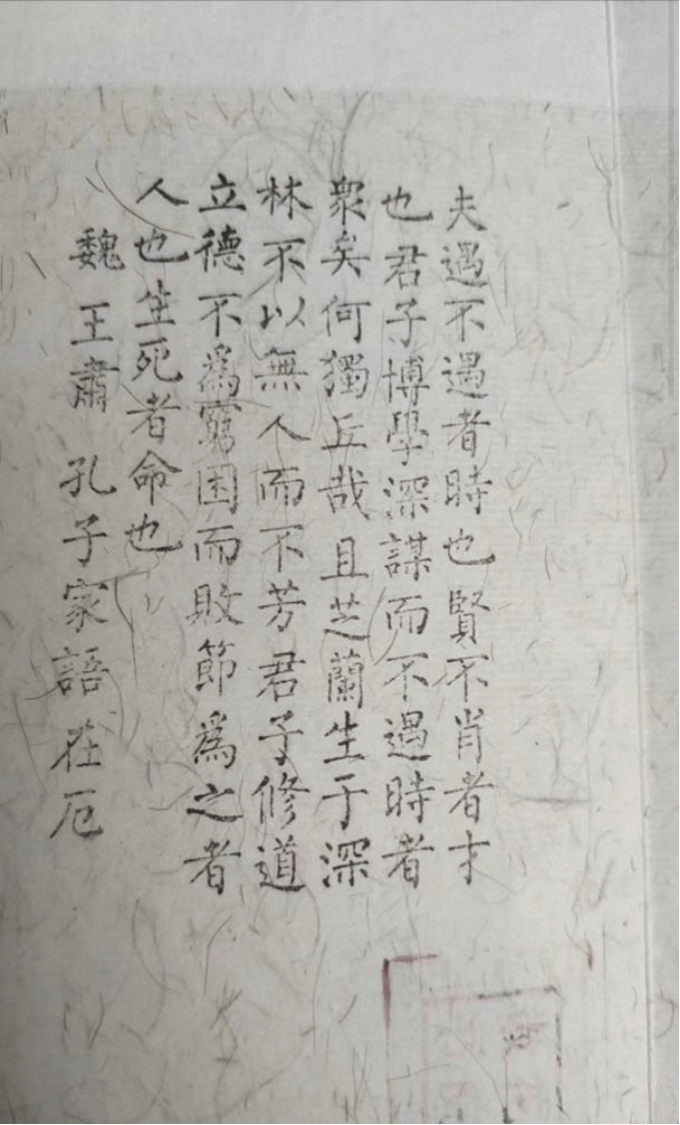 夫遇不遇者時也賢不肖者才
也君子博學深謀而不遇時者
衆矣何獨丘哉且芝蘭生于深
林不以無人而不芳君子修道
立德不為窮困而敗節為之者
人也生死者命也
魏王肅 孔子家語在厄